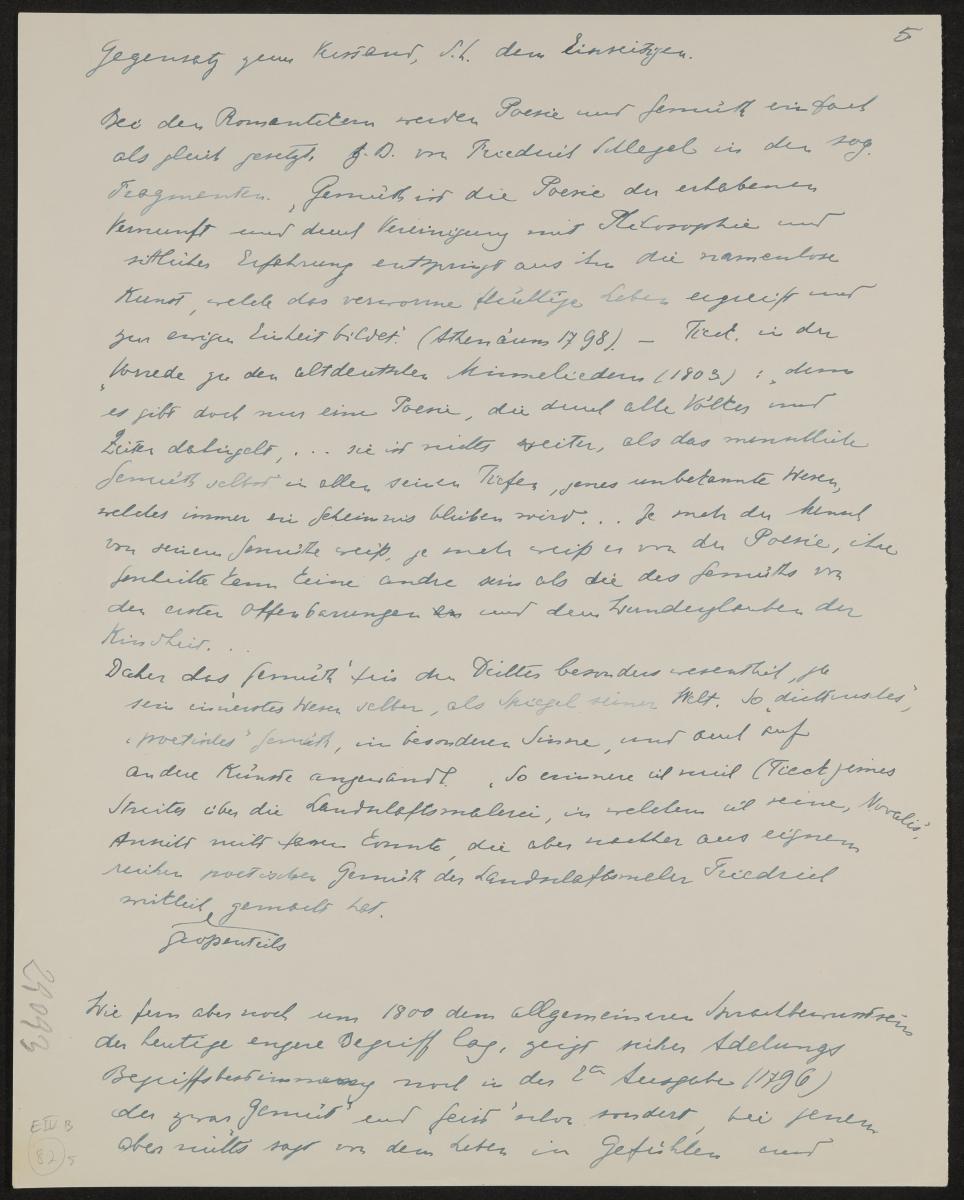 5
Gegensatz zum Verstand, d.h. dem Einseitigen.
Bei den Romantikern werden Poesie und Gemüth einfach
als gleich gesetzt, z.B. von Friedrich Schlegel in den sog.
Fragmenten. „Gemüth ist die Poesie der erhabenen
Vernunft und durch Vereinigung mit Philosophie und
sittlicher Erfahrung entspringt aus ihr die namenlose
Kunst, welche das verworrne flüchtige Leben ergreift und
zur ewigen Einheit bildet." (Athenäum 1798). — Tieck. in der
„Vorrede zu den altdeutschen Minneliedern (1803) : „denn
es gibt doch nur eine Poesie, die durch alle Völker und
Zeiten dahingeht, ... sie ist nichts weiter, als das menschliche
Gemüth selbst in allen seinen Tiefen, jenes unbekannte Wesen,
welches immer ein Geheimnis bleiben wird... Je mehr der Mensch
von seinem Gemüthe weiß, je mehr weiß er von der Poesie, ihre
Geschichte kann keine andre sein als die des Gemüths von
den ersten Offenbarungen und dem Wunderglauben der
Kindheit...
Daher das Gemüth für den Dichter besonders wesentlich, ja
sein innerstes Wesen selber, als Spiegel seiner Welt. So „dichterisches",
„poetisches" Gemüth, im besonderen Sinne, und auch auf
andere Künste angewandt. „So erinnere ich mich (Tieck) eines
Streites über die Landschaftsmalerei, in welchem ich seine, Novalis',
Ansicht nicht fassen konnte, die aber nachher aus eignem
reichen poetischen Gemüth der Landschaftsmaler Friedrich
wirklich gemacht hat.
großenteils
Wie fern aber noch um 1800 dem allgemeineren Sprachbewusstsein
der heutige engere Begriff lag, zeigt sicher Adelungs
Begriffsbestimmung noch in der 2ten Ausgabe (1796)
der zwar „Gemüt" und Geist" schon sondert, bei jenem
aber nichts sagt von dem Leben in Gefühlen und
E IV B
82 5